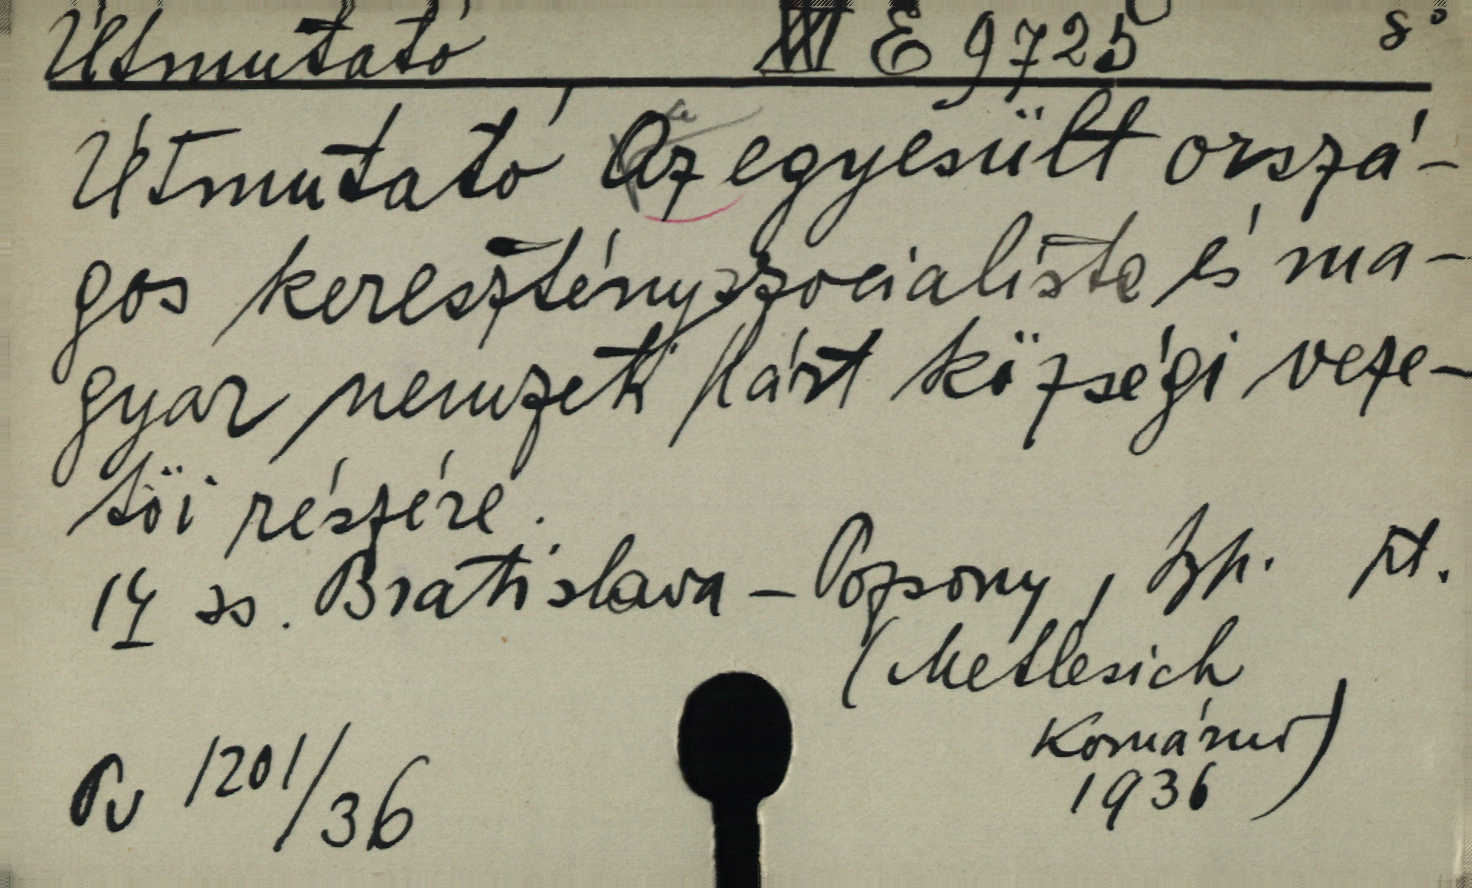 Útmutató XI E 9725 8°
Útmutató Az egyesült orszá-
gos keresztényszocialista és ma-
gyar nemzeti párt községi veze-
tői részére.
14 ss. Bratislava – Pozsony, Typ.
(Metlesich
Komárno)
Pu 1201/36
1936